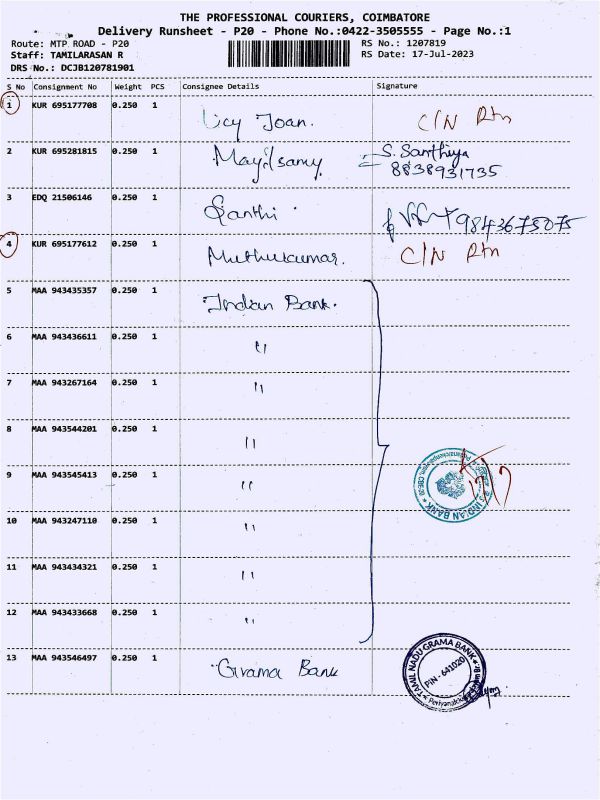 THE PROFESSIONAL COURIERS, COIMBATORE
Delivery Runsheet - P20 - Phone No.:0422-3505555 - Page No.:1
Route: MTP ROAD - P20 RS No.: 1207819
Staff: TAMILARASAN R RS Date: 17-Jul-2023
DRS No.: DCJB120781901
S No Consignment No Weight PCS Consignee Details Signature
1 KUR 695177708 0.250 1 Joan. C/N Rtn
2 KUR 695281815 0.250 1 Mayilsamy S. Santhiya
8838931735
3 EDQ 21506146 0.250 1 9843675075
4 KUR 695177612 0.250 1 Muthukumar. C/N Rtn
5 MAA 943435357 0.250 1 Indian Bank.
6 MAA 943436611 0.250 1 "
7 MAA 943267164 0.250 1 "
8 MAA 943544201 0.250 1 "
9 MAA 943545413 0.250 1 "
INDIAN BANK
10 MAA 943247110 0.250 1 "
11 MAA 943434321 0.250 1 "
12 MAA 943433668 0.250 1 "
13 MAA 943546497 0.250 1 Grama Bank
TAMIL NADU GRAMA BANK
PIN - 641020